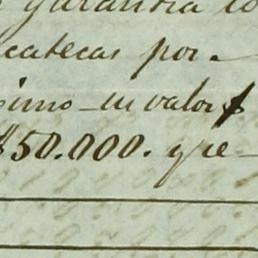 garantia co
catecas por
simo en valor $
$50.000. y re